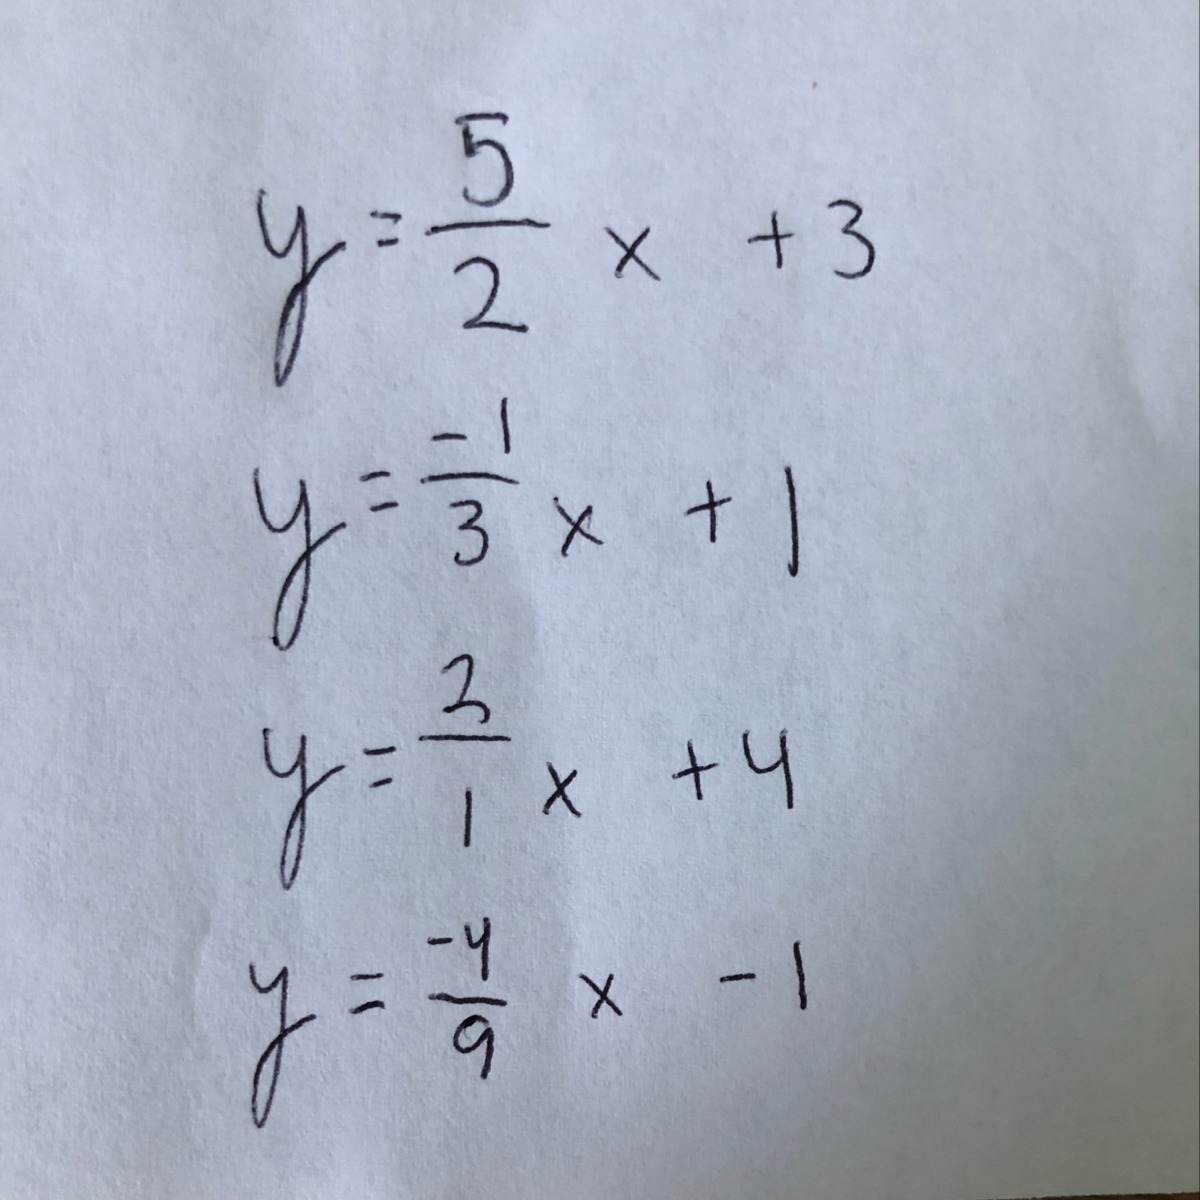 y = 5/2 x + 3
y = -1/3 x + 1
y = 2/1 x + 4
y = -4/9 x - 1